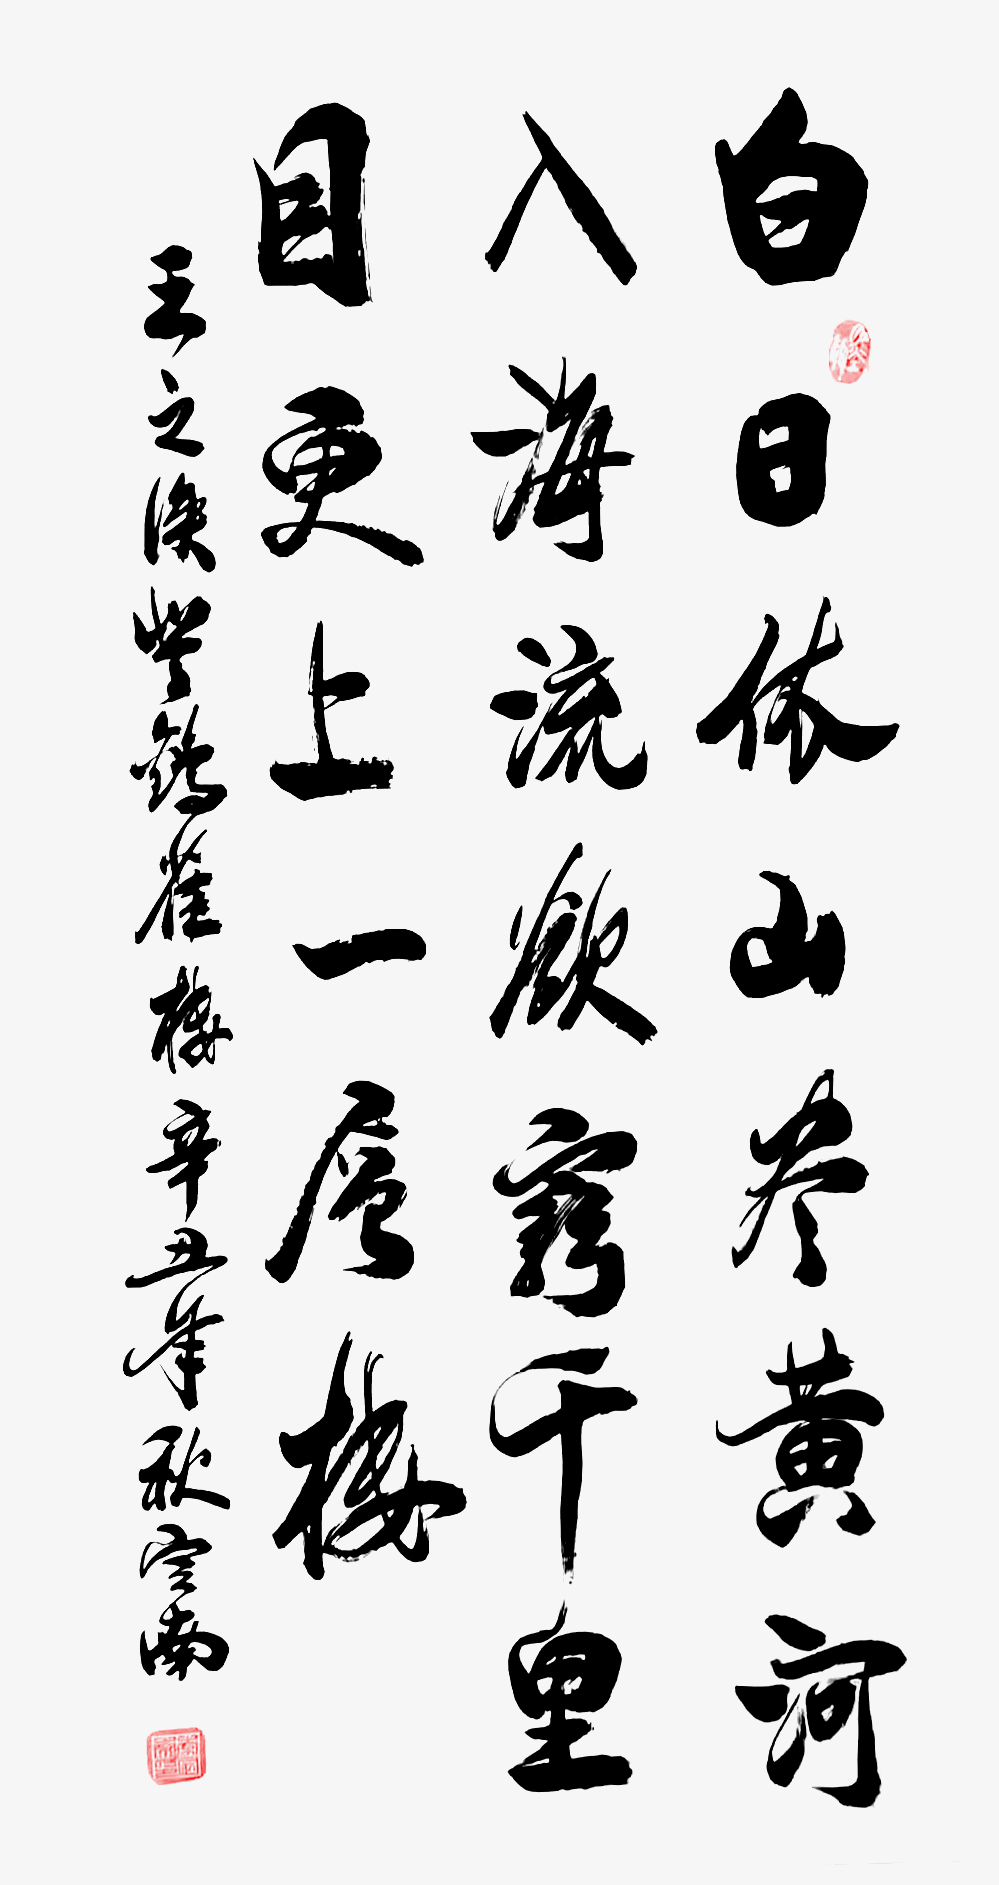 白日依山尽黄河
入海流欲窮千里
目更上一層楼
王之涣登鹳雀楼辛丑年秋